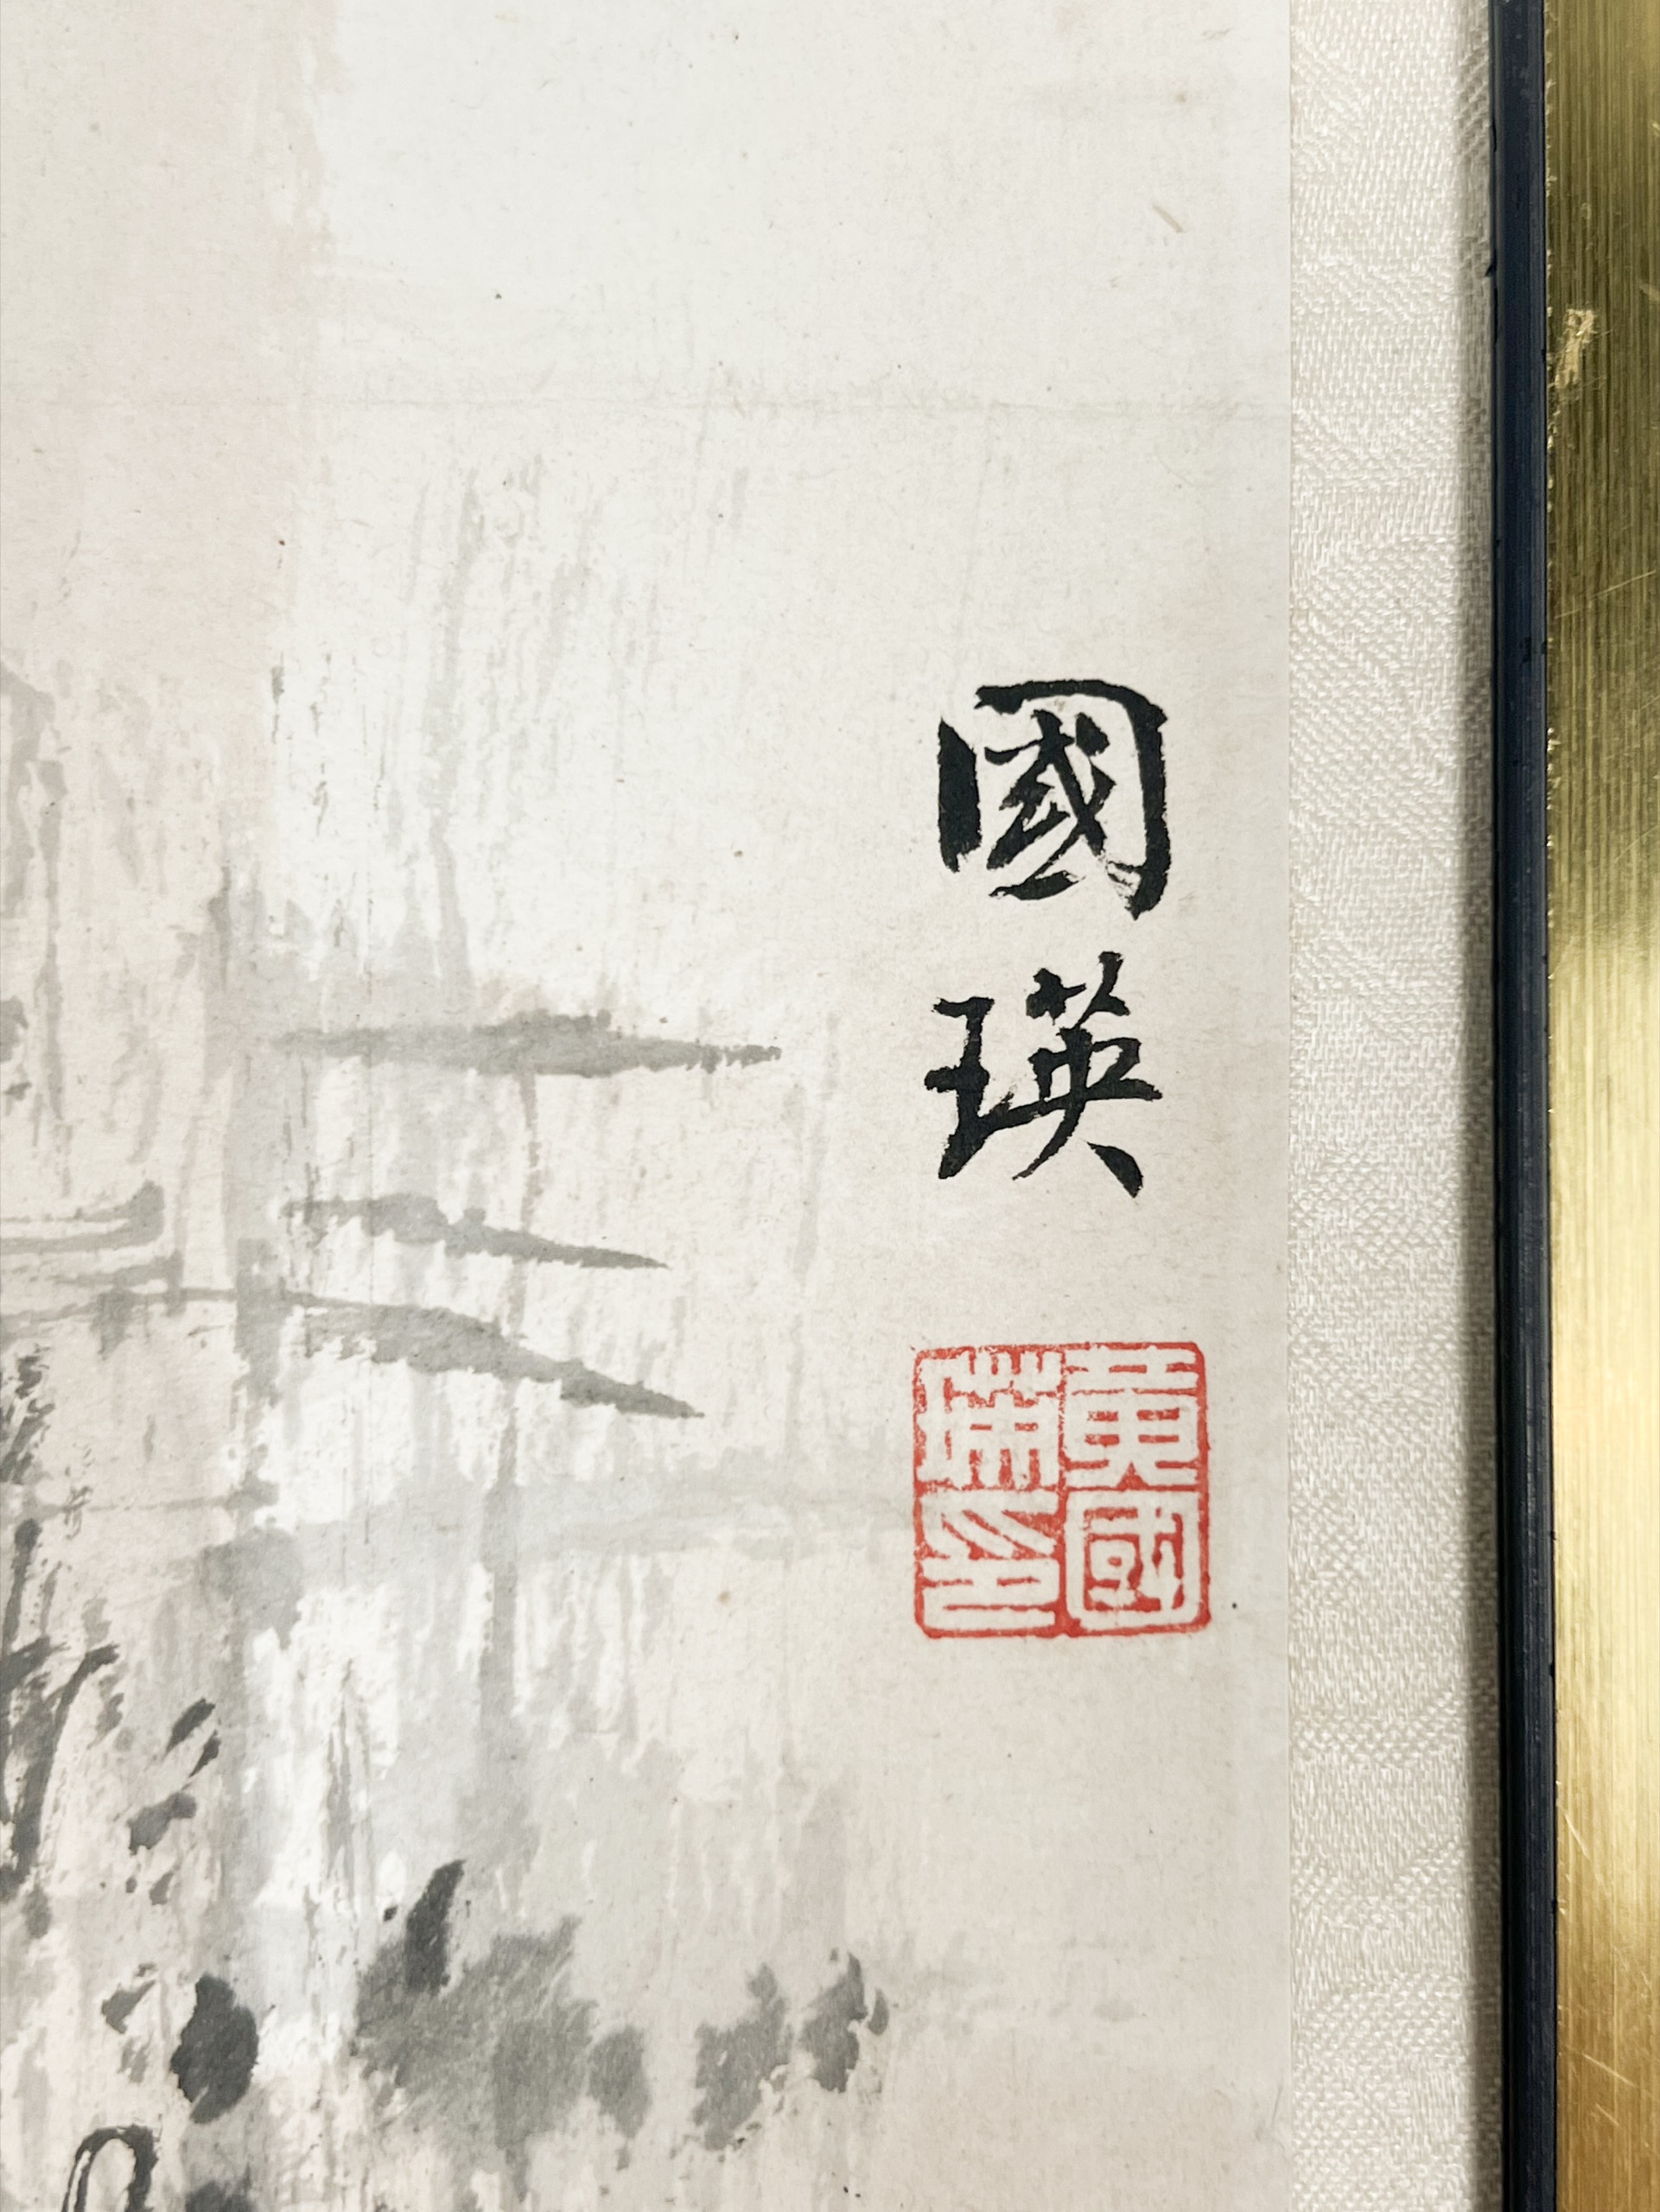 國瑛
黃國
瑛印